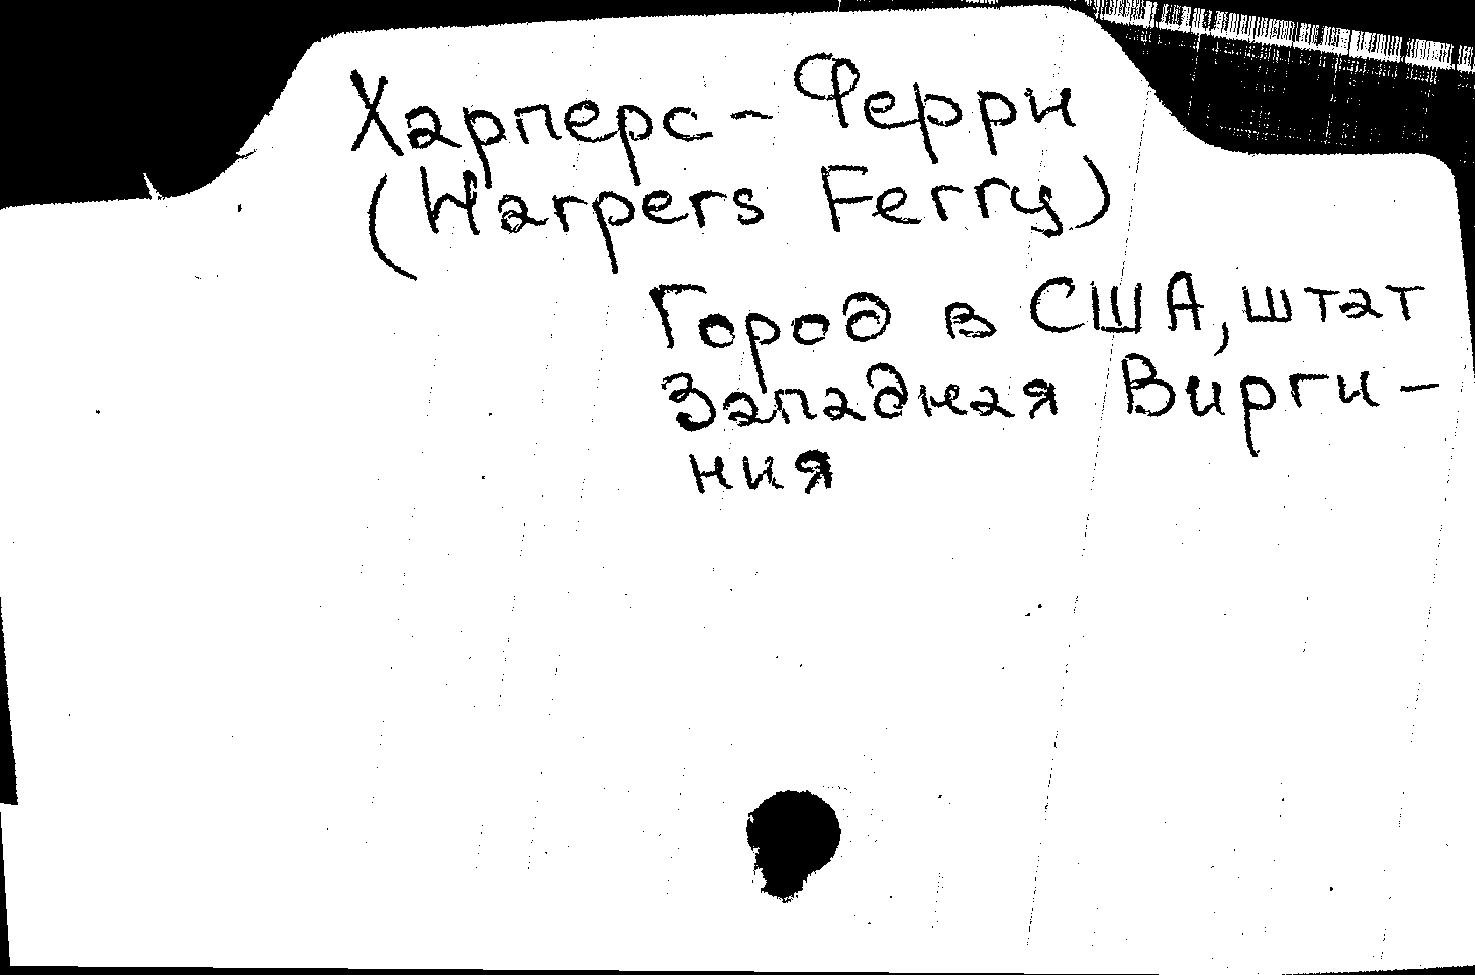 Харперс-Ферри
(Harpers Ferry)
Город в США, штат
Западная Вирги-
ния